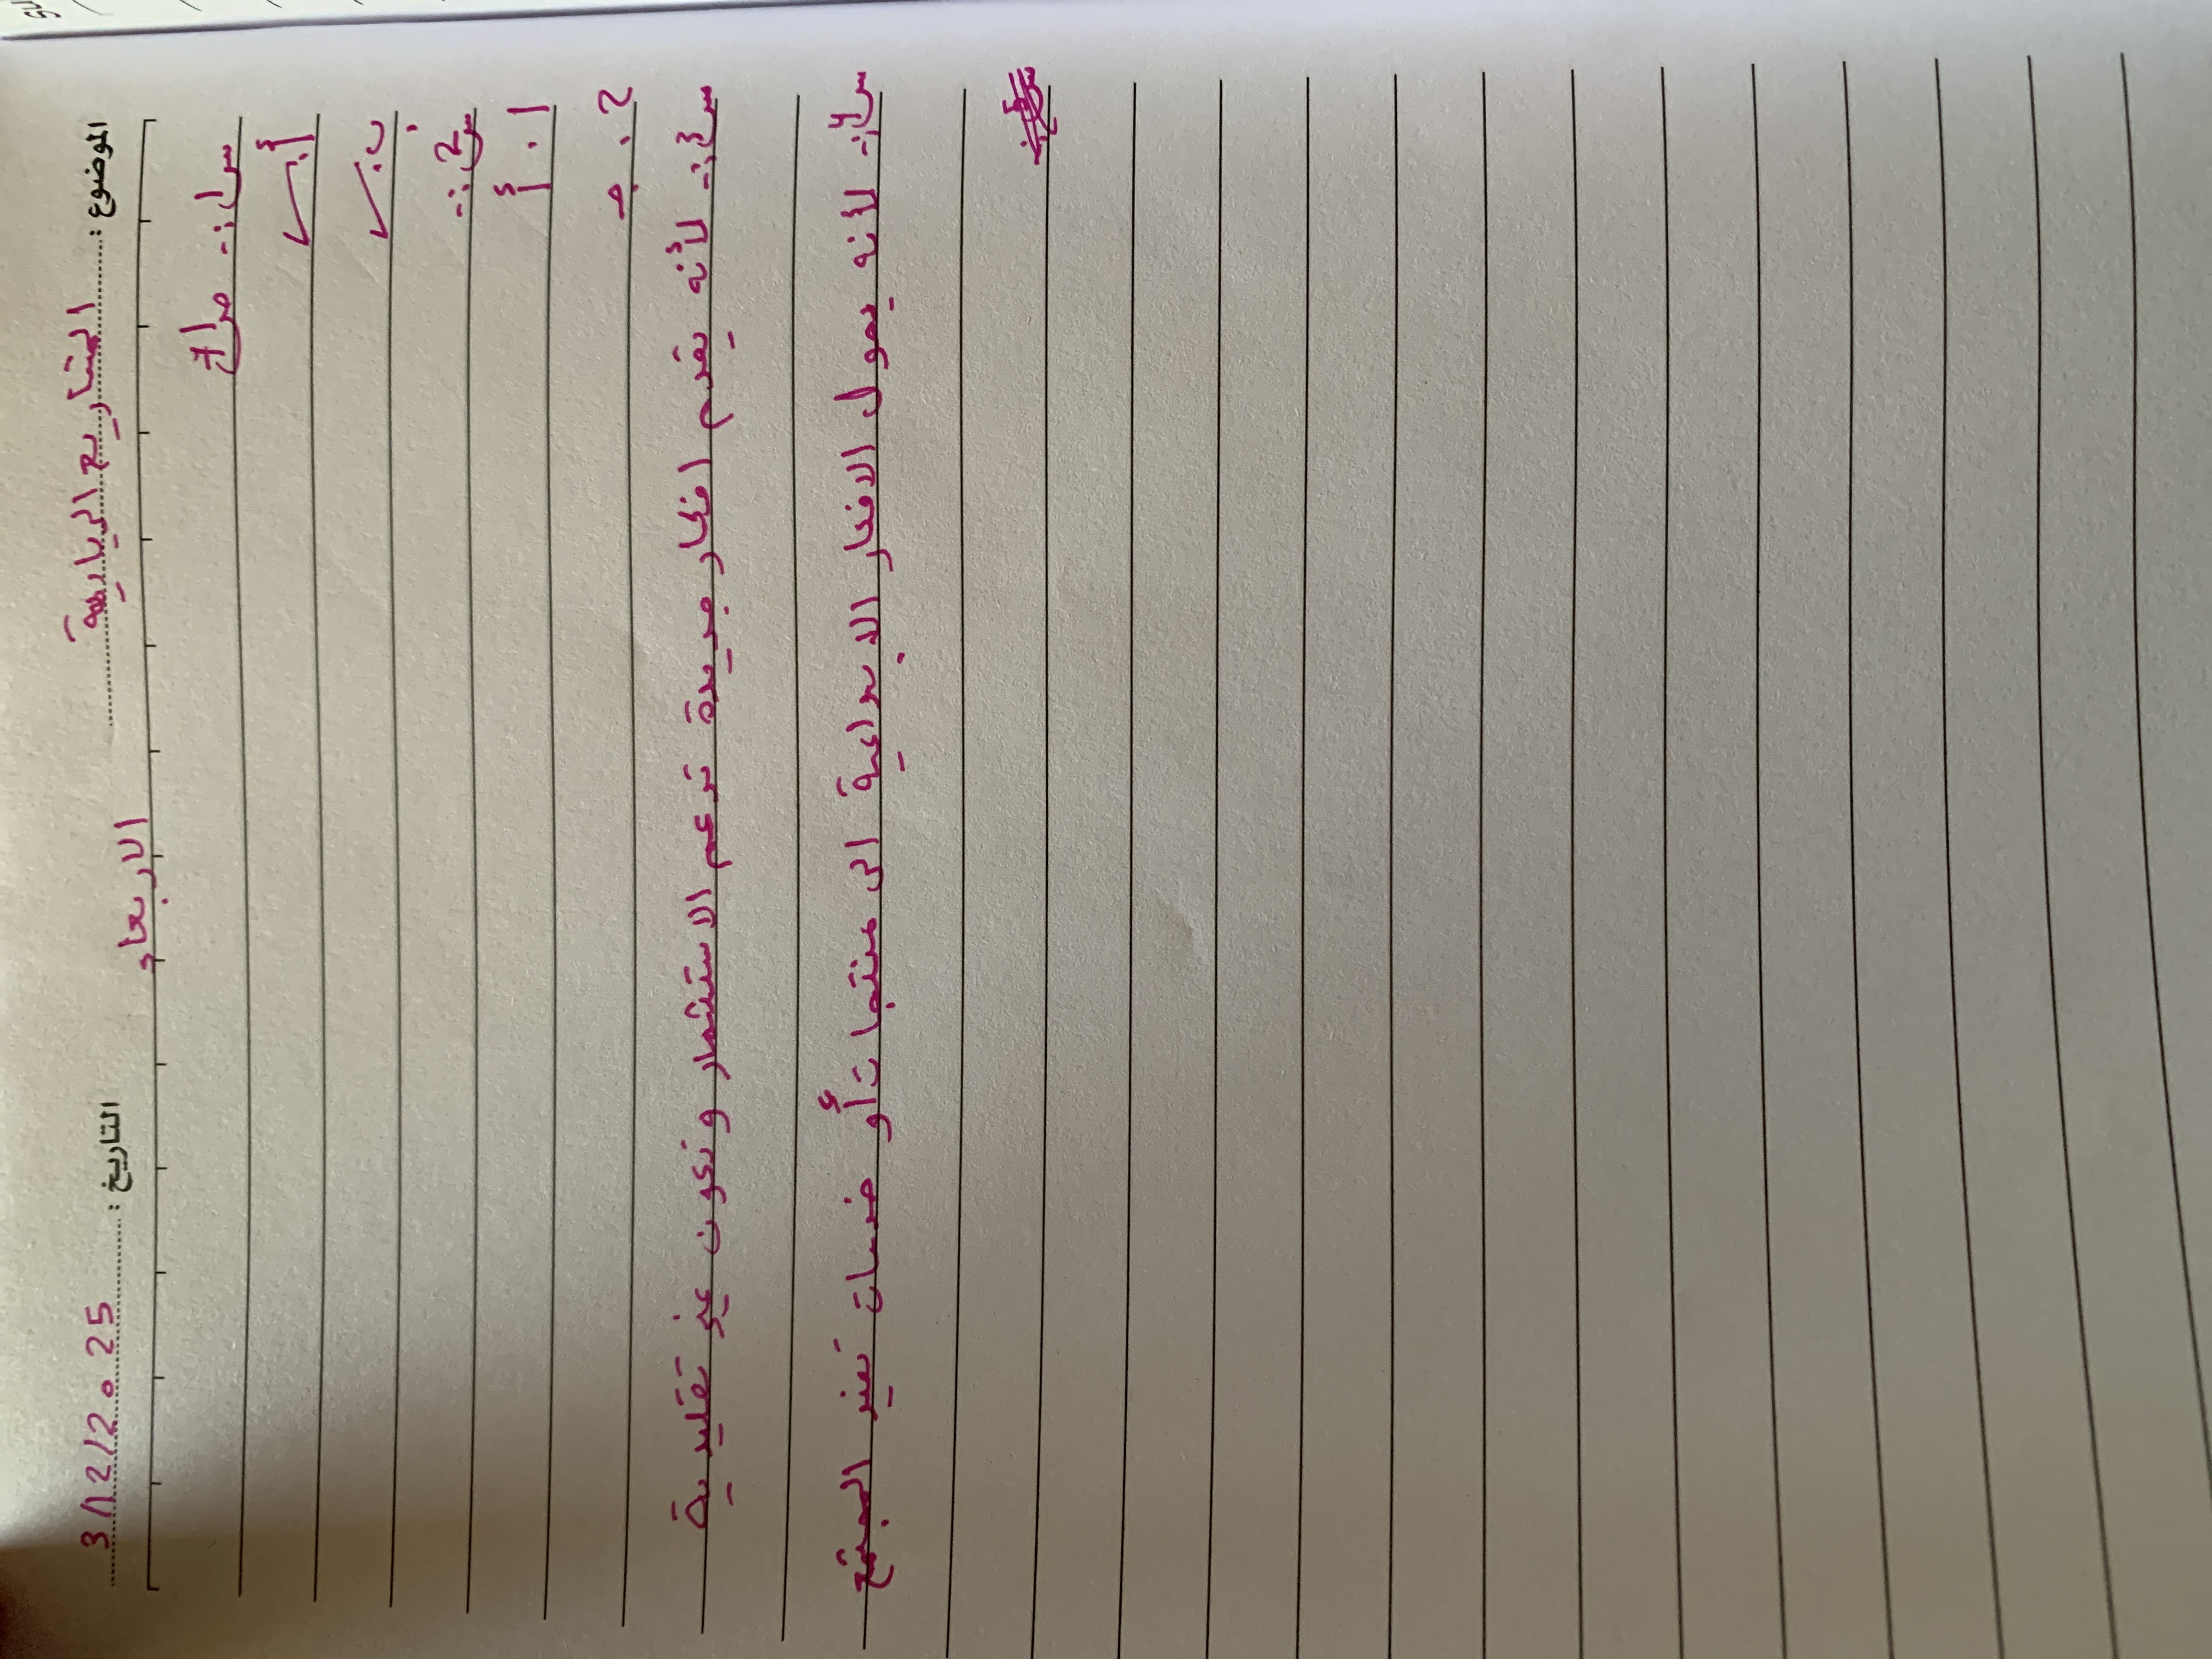 الموضوع : المشاريع الريادية التاريخ : 3/12/2025
الاربعاء
س1:- صراع
أ. ✓
ب. ✓
س2:-
1. أ
2. ج
س3:- لأنه يقدم افكار جديدة تدعم الاستثمار وتكون غير تقليدية
س4:- لأنه يحول الافكار الابداعية الى منتجات أو خدمات تغير المجتمع